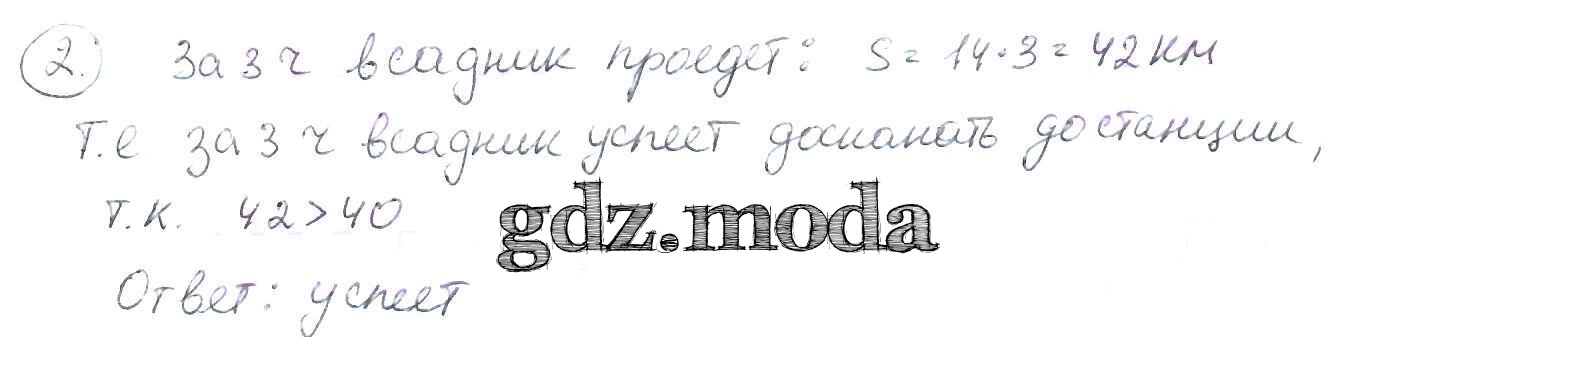 2. За 3 ч всадник проедет: S = 14·3 = 42 км
Т.е за 3 ч всадник успеет доскакать до станции,
т.к. 42 > 40
gdz.moda
Ответ: успеет